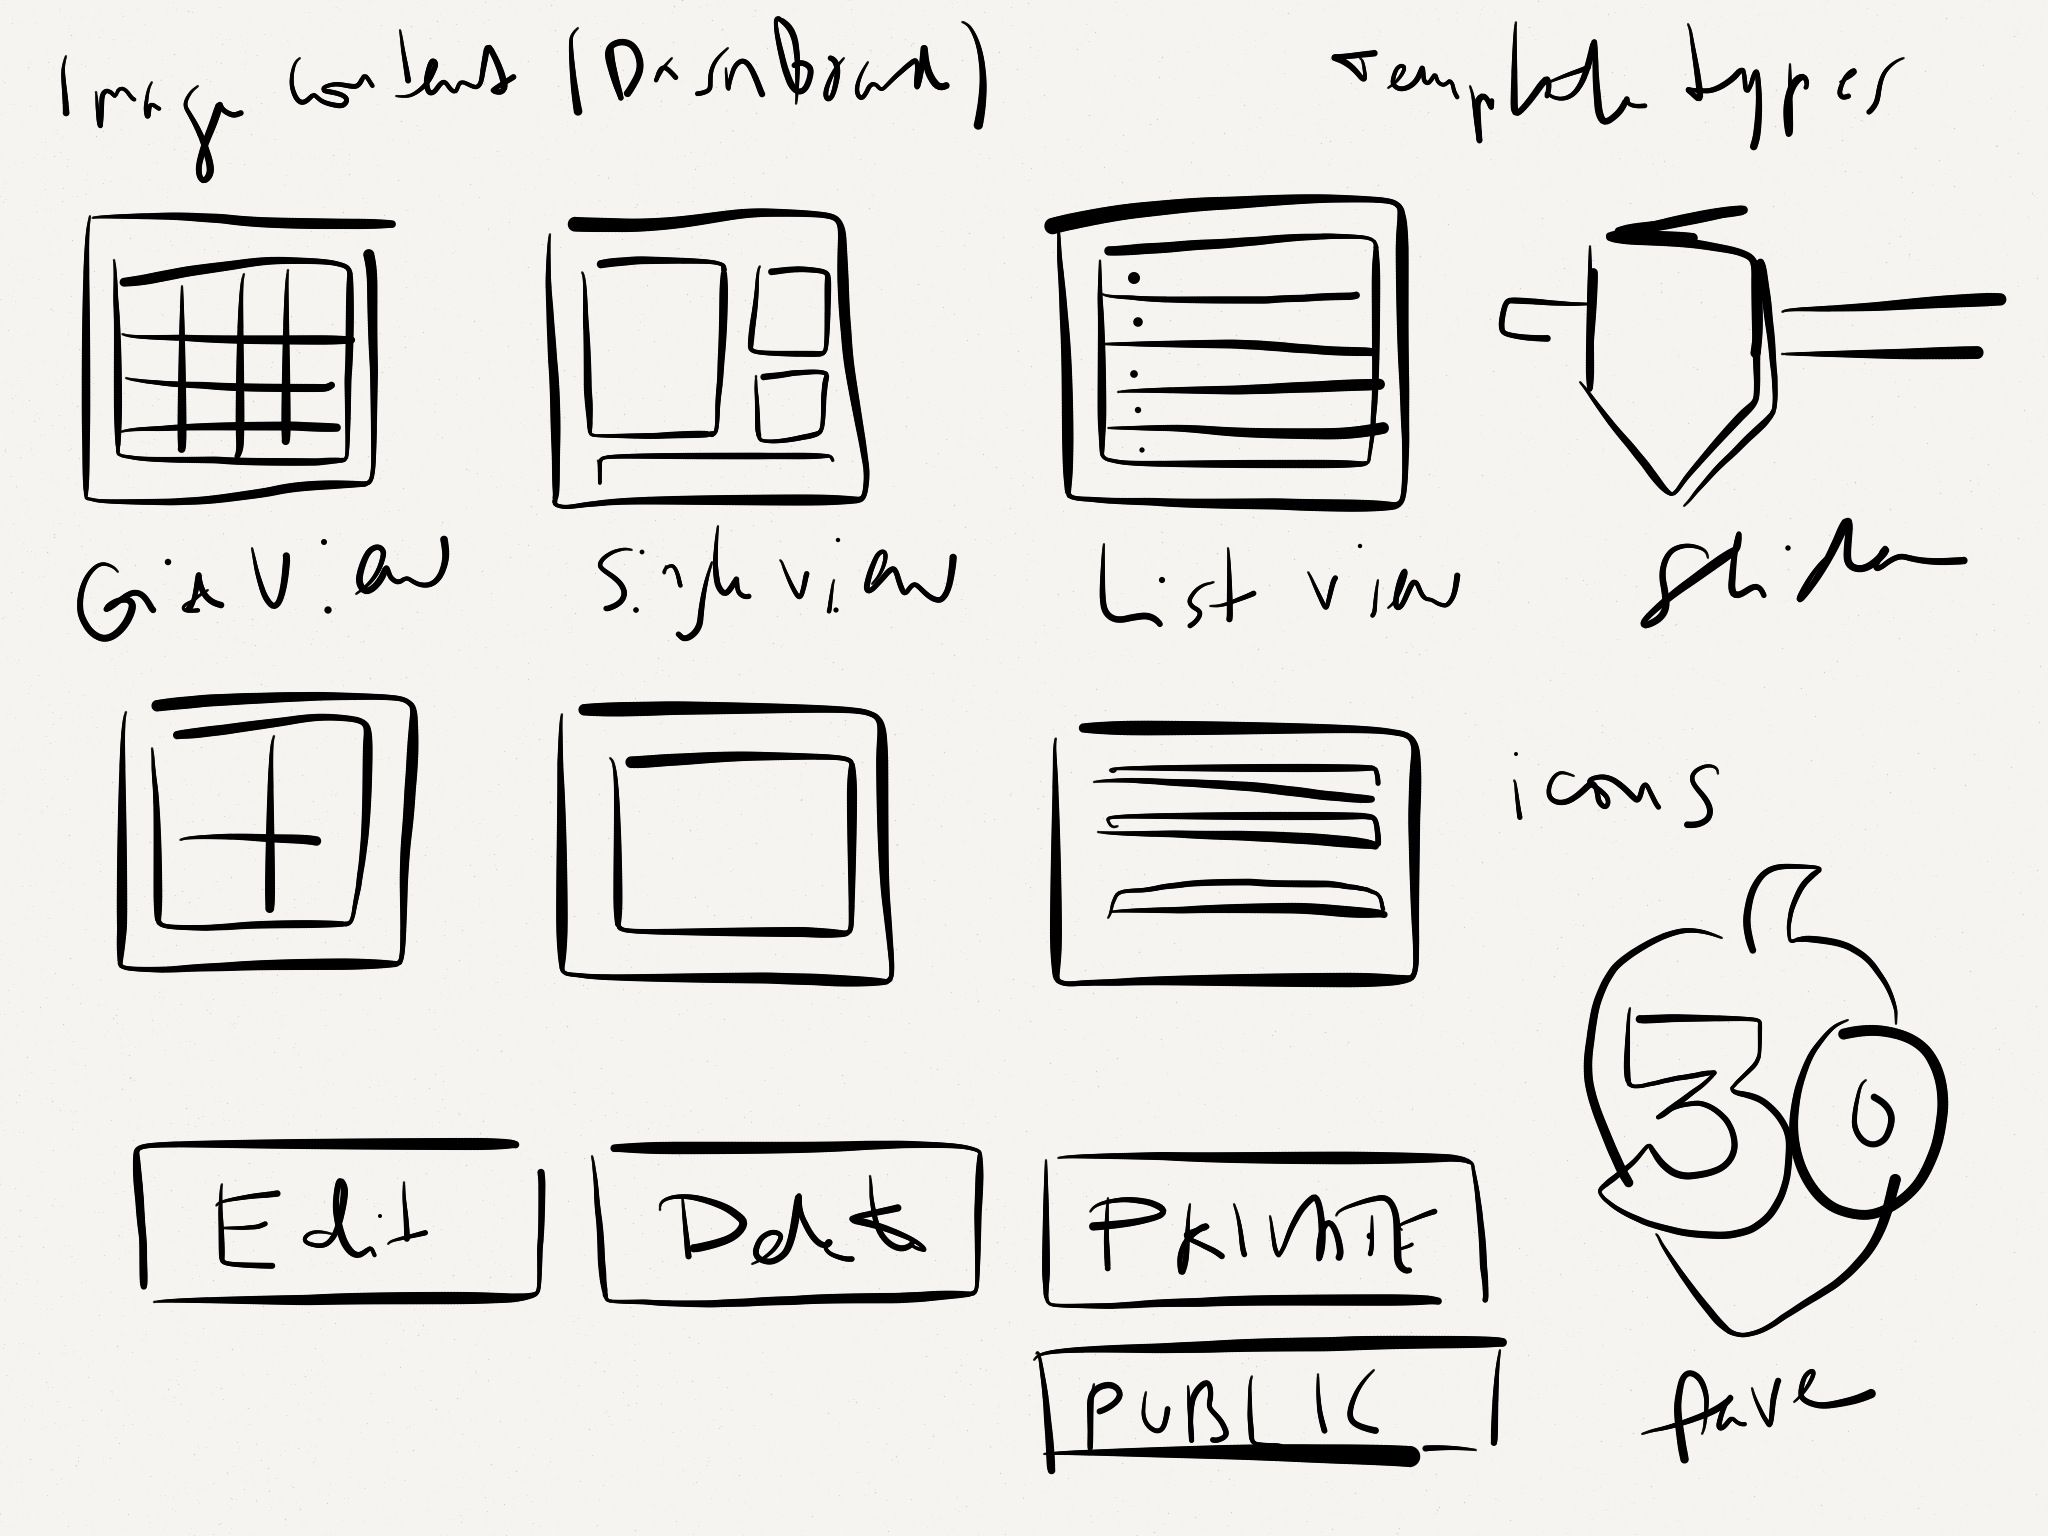 Image content (Dashboard)
Template types
Grid view
Single view
List view
Slider
icons
30
Edit
Delete
PRIVATE
PUBLIC
fave